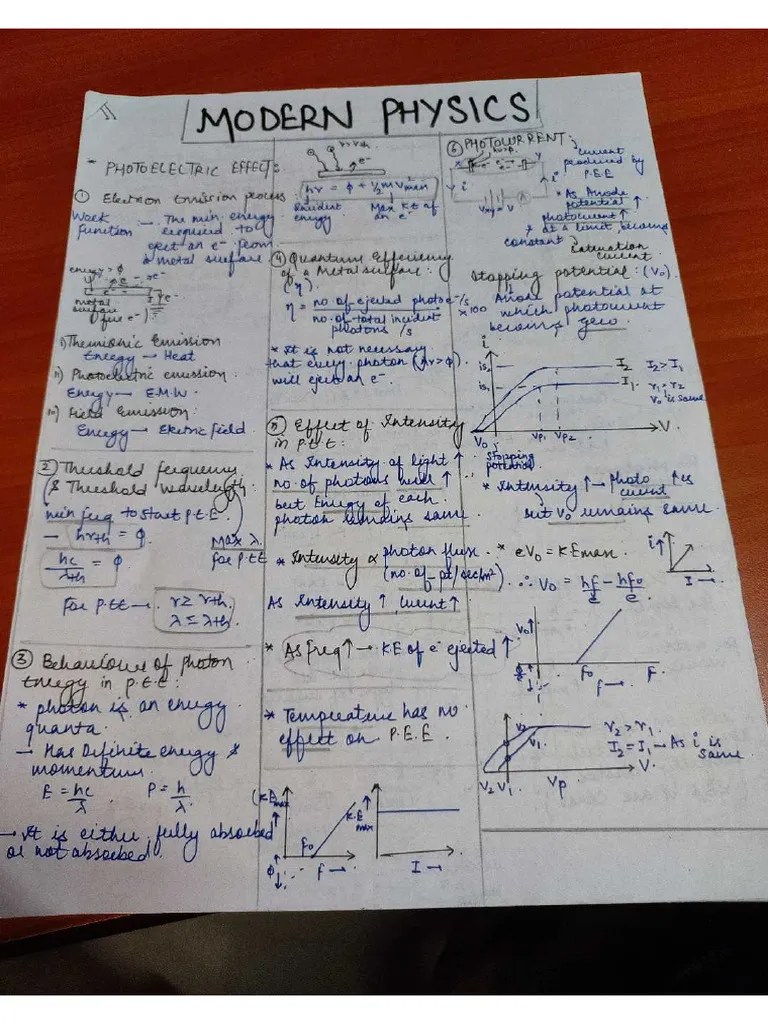 MODERN PHYSICS
- PHOTOELECTRIC EFFECT:
① Electron Emission process
Work Function → The min. energy
required to
eject an e⁻ from
a metal surface
energy > ϕ
e⁻
metal surface
(free e⁻)
i) Thermionic Emission
Energy → Heat
ii) Photoelectric emission:
Energy → E.M.W.
iii) Field Emission:
Energy → Electric field
② Threshold frequency
& Threshold wavelength:
min freq to start P.E.E.
→ hνth = ϕ
hc/λth = ϕ
Max λ
for P.E.E
For P.E.E → ν ≥ νth.
λ ≤ λth.
③ Behaviour of photon
Energy in P.E.E:
* photon is an energy
quanta.
→ Has Definite energy &
momentum.
E = hc/λ P = h/λ
→ It is either fully absorbed
or not absorbed.
ν>νth.
e⁻
hν = ϕ + ½mv²min
Incident energy
Max KE of an e⁻
④ Quantum Efficiency
of a Metal surface:
(η)
η = no. of ejected photo e⁻/s / no. of total incident photons/s × 100
* It is not necessary
that every photon (hν > ϕ)
will eject an e⁻
⑤ Effect of Intensity
in P.E.E:
* As Intensity of light ↑
no. of photons ↑
but Energy of each
photon remains same.
* Intensity ∝ photon flux
(no. of pt/sec/m²)
As Intensity ↑ Current ↑
* As freq ↑ → K.E of e⁻ ejected ↑
* Temperature has no
effect on P.E.E.
K.Emax
f₀
ϕ
f →
K.E max
I →
⑥ PHOTOCURRENT:
current
produced by
P.E.E
i
V
A
* As Anode
potential ↑
photocurrent ↑
* at a limit, becomes
constant
Saturation
current
Stopping potential: (V₀).
Anode potential at
which photocurrent
becomes zero
i
is₂
is₁
I₂
I₁
I₂ > I₁
ν₁ = ν₂
V₀ is same
V₀
Vp₁
Vp₂
V
stopping
potential
* Intensity ↑ → photo current ↑es
but V₀ remains same.
* eV₀ = KEmax.
∴ V₀ = hf/e − hf₀/e
i↑
I →
V₀↑
f₀
F
f →
ν₂
ν₁
ν₂ > ν₁
I₂ = I₁ → As i is
same.
V
V₂ V₁
Vp